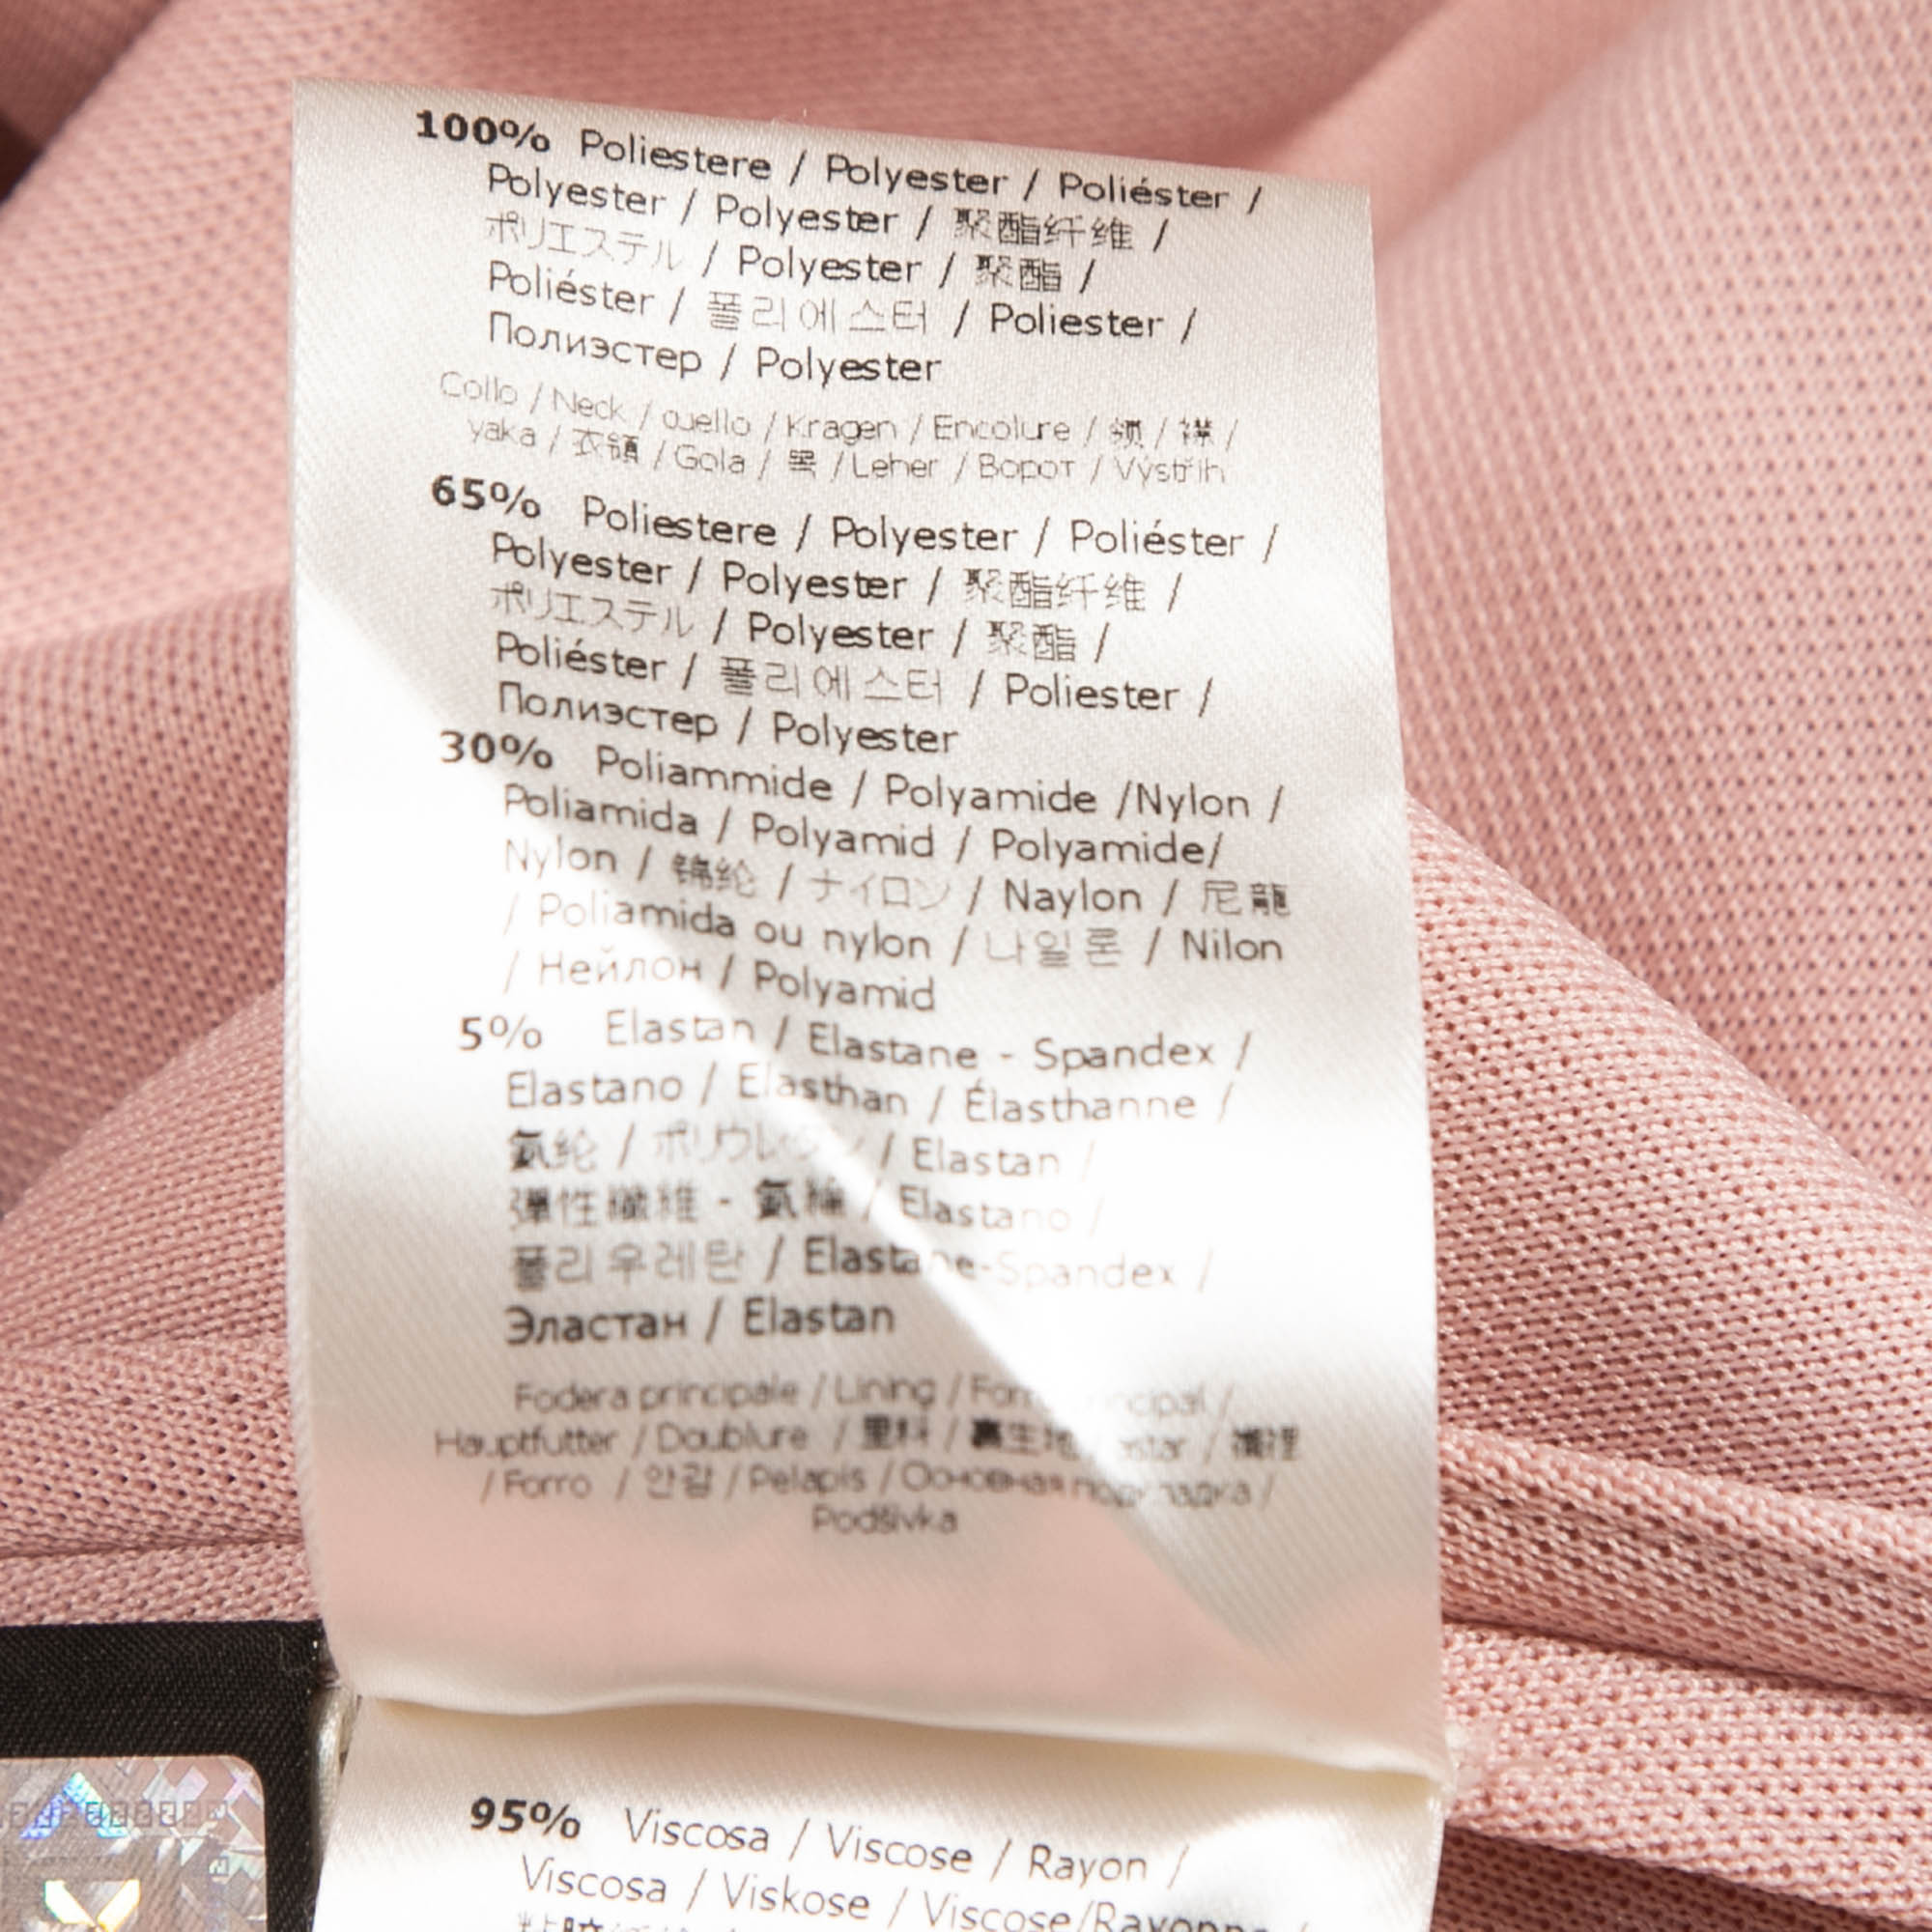 100% Poliestere / Polyester / Poliéster /
Polyester / Polyester / 聚酯纤维 /
ポリエステル / Polyester / 聚酯 /
Poliéster / 폴리에스터 / Poliester /
Полиэстер / Polyester
Collo / Neck / cuello / Kragen / Encolure / 领 / 襟 /
yaka / 衣領 / Gola / 목 / Leher / Ворот / Výstřih
65% Poliestere / Polyester / Poliéster /
Polyester / Polyester / 聚酯纤维 /
ポリエステル / Polyester / 聚酯 /
Poliéster / 폴리에스터 / Poliester /
Полиэстер / Polyester
30% Poliammide / Polyamide /Nylon /
Poliamida / Polyamid / Polyamide/
Nylon / 锦纶 / ナイロン / Naylon / 尼龍
/ Poliamida ou nylon / 나일론 / Nilon
/ Нейлон / Polyamid
5% Elastan / Elastane - Spandex /
Elastano / Elasthan / Élasthanne /
氨纶 / ポリウレタン / Elastan /
彈性纖維 - 氨綸 / Elastano /
폴리우레탄 / Elastane-Spandex /
Эластан / Elastan
Fodera principale / Lining /
Hauptfutter / Doublure / 里料 / 裏生地 /
/ Forro / 안감 / Pelapis / Основная подкладка /
Podšívka
95% Viscosa / Viscose / Rayon /
Viscosa / Viskose / Viscose/Rayonne /